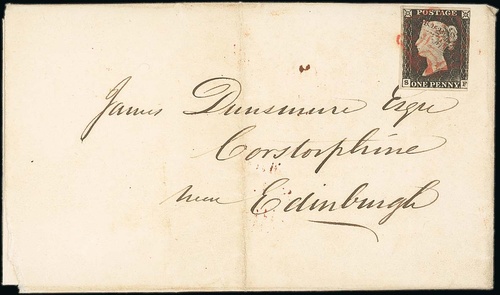 POSTAGE
S F
ONE PENNY
James Dunsmure Esqre
Corstorphine
near Edinburgh